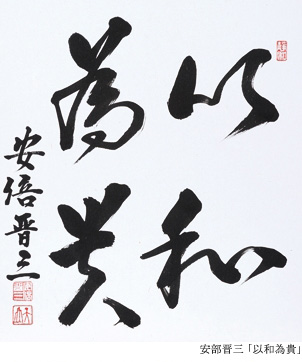 以和
為貴
安倍晋三
安部晋三「以和為貴」